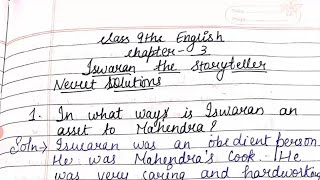 Class 9the English
Chapter - 3
Iswaran the storyteller
Ncert Solutions
1. In what ways is Iswaran an
asset to Mahendra?
Soln → Iswaran was an obedient person
He was Mahendra's Cook. He
was very caring and hardworking